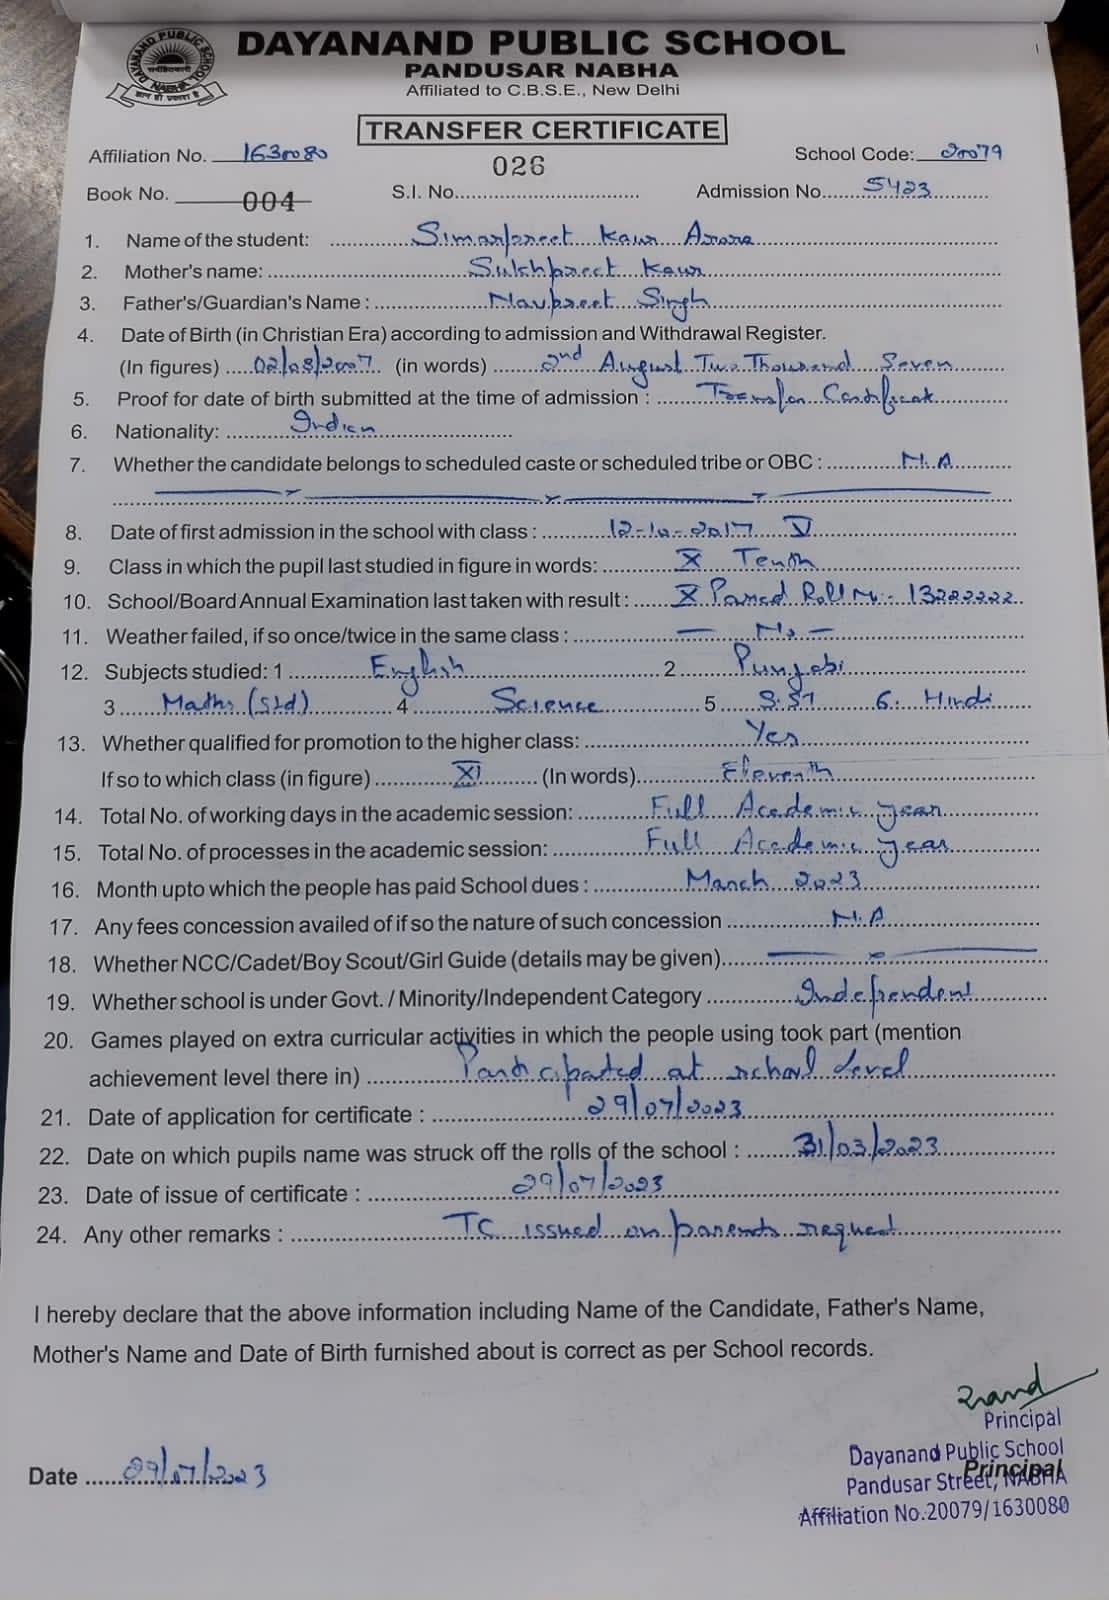 DAYANAND PUBLIC SCHOOL
PANDUSAR NABHA
Affiliated to C.B.S.E., New Delhi
DAYANAND PUBLIC SCHOOL
NABHA
TRANSFER CERTIFICATE
Affiliation No. 1630080
026
School Code: 20079
Book No. 004
S.I. No.
Admission No. 5423
1. Name of the student: Simarpreet Kaur Arora
2. Mother's name: Sukhpreet Kaur
3. Father's/Guardian's Name : Navpreet Singh
4. Date of Birth (in Christian Era) according to admission and Withdrawal Register.
(In figures) 02/08/2007 (in words) 2nd August Two Thousand Seven
5. Proof for date of birth submitted at the time of admission : Transfer Certificate
6. Nationality: Indian
7. Whether the candidate belongs to scheduled caste or scheduled tribe or OBC : N.A
8. Date of first admission in the school with class : 12-10-2017 V
9. Class in which the pupil last studied in figure in words: X Tenth
10. School/Board Annual Examination last taken with result : X Passed Roll No:- 13222222
11. Weather failed, if so once/twice in the same class : — No —
12. Subjects studied: 1 English 2 Punjabi
3 Maths (Std) 4 Science 5 S.ST 6. Hindi
13. Whether qualified for promotion to the higher class: Yes
If so to which class (in figure) XI (In words) Eleventh
14. Total No. of working days in the academic session: Full Academic year
15. Total No. of processes in the academic session: Full Academic year
16. Month upto which the people has paid School dues : March 2023
17. Any fees concession availed of if so the nature of such concession N.A
18. Whether NCC/Cadet/Boy Scout/Girl Guide (details may be given)
19. Whether school is under Govt. / Minority/Independent Category Independent
20. Games played on extra curricular activities in which the people using took part (mention
achievement level there in) Participated at school level
21. Date of application for certificate : 29/07/2023
22. Date on which pupils name was struck off the rolls of the school : 31/03/2023
23. Date of issue of certificate : 29/07/2023
24. Any other remarks : TC issued on parents request
I hereby declare that the above information including Name of the Candidate, Father's Name,
Mother's Name and Date of Birth furnished about is correct as per School records.
Principal
Dayanand Public School
Date 29/07/2023
Principal
Pandusar Street, NABHA
Affiliation No.20079/1630080